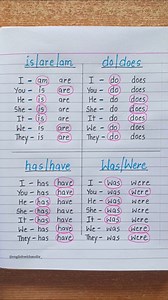 is/are/am
I - am are
You - is are
He - is are
She - is are
It - is are
We - is are
They - is are
do/does
I - do does
You - do does
He - do does
She - do does
It - do does
We - do does
They - do does
has/have
I - has have
You - has have
He - has have
She - has have
It - has have
We - has have
They - has have
Was/Were
I - was were
You - was were
He - was were
She - was were
It - was were
We - was were
They - was were